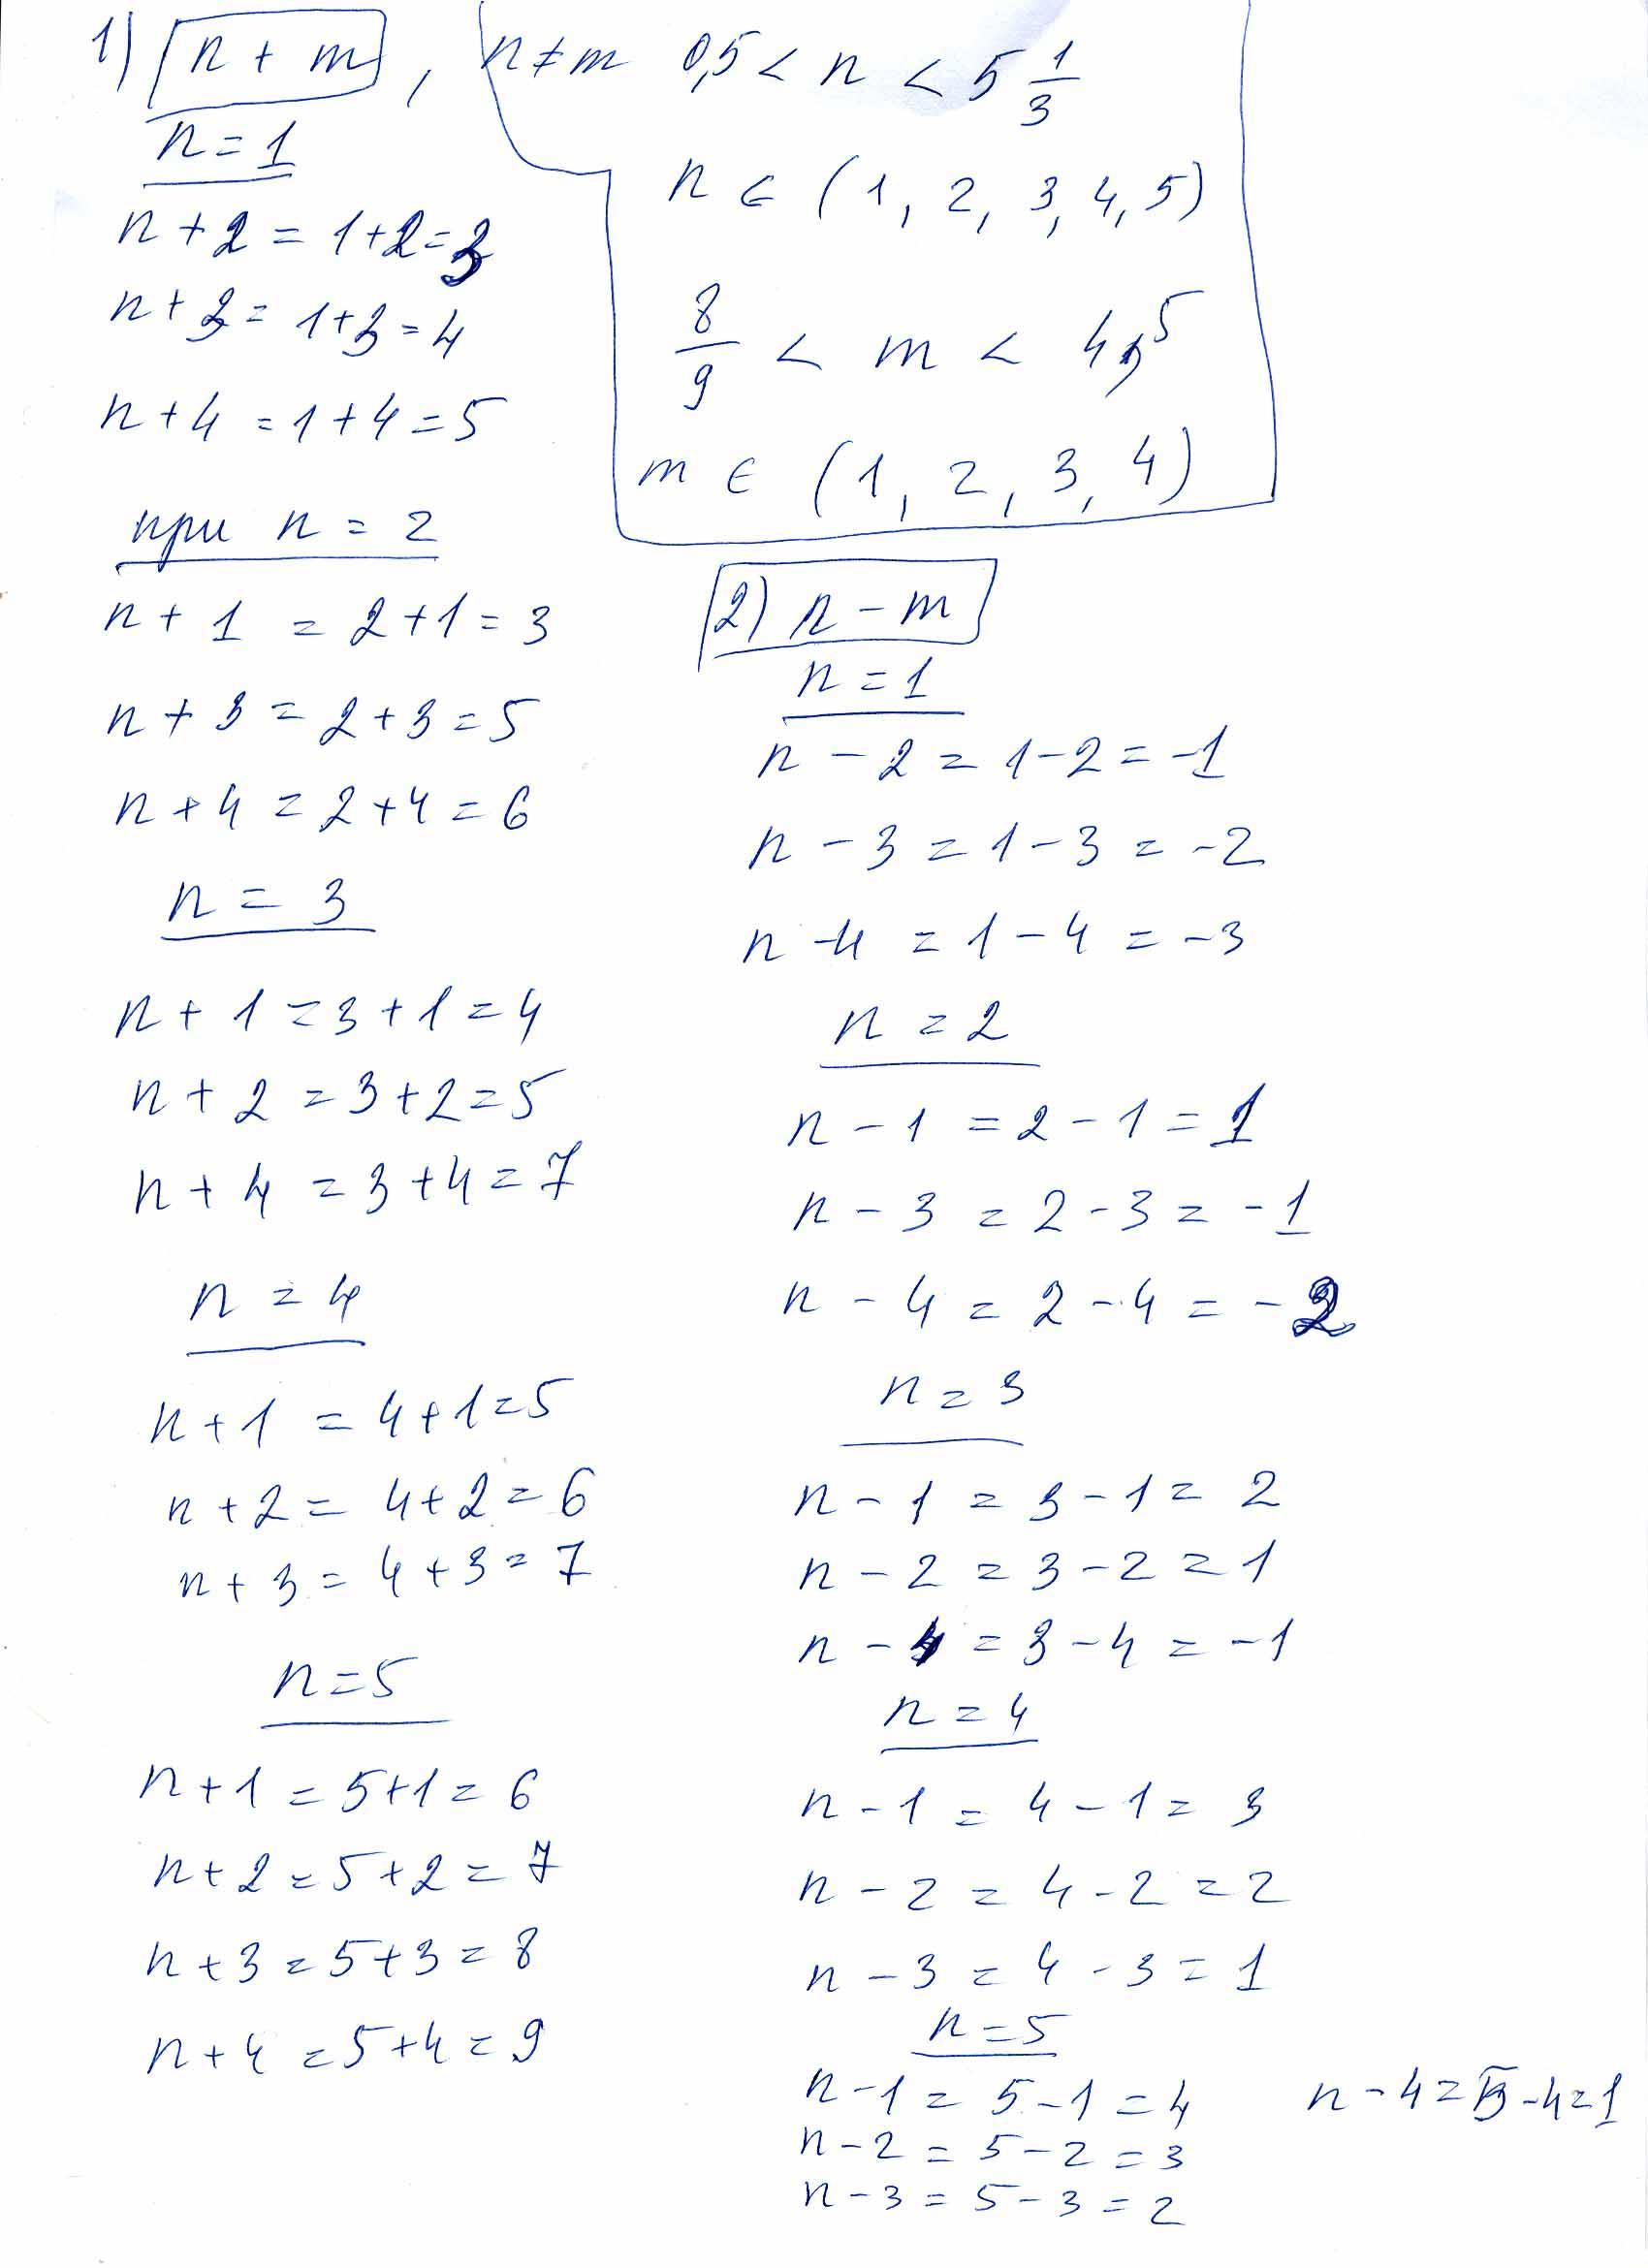 1) n + m , n ≠ m 0,5 < n < 5 1/3
n ∈ (1, 2, 3, 4, 5)
8/9 < m < 4,5
m ∈ (1, 2, 3, 4)
n = 1
n + 2 = 1 + 2 = 3
n + 3 = 1 + 3 = 4
n + 4 = 1 + 4 = 5
при n = 2
n + 1 = 2 + 1 = 3
n + 3 = 2 + 3 = 5
n + 4 = 2 + 4 = 6
n = 3
n + 1 = 3 + 1 = 4
n + 2 = 3 + 2 = 5
n + 4 = 3 + 4 = 7
n = 4
n + 1 = 4 + 1 = 5
n + 2 = 4 + 2 = 6
n + 3 = 4 + 3 = 7
n = 5
n + 1 = 5 + 1 = 6
n + 2 = 5 + 2 = 7
n + 3 = 5 + 3 = 8
n + 4 = 5 + 4 = 9
2) n - m
n = 1
n - 2 = 1 - 2 = -1
n - 3 = 1 - 3 = -2
n - 4 = 1 - 4 = -3
n = 2
n - 1 = 2 - 1 = 1
n - 3 = 2 - 3 = -1
n - 4 = 2 - 4 = -2
n = 3
n - 1 = 3 - 1 = 2
n - 2 = 3 - 2 = 1
n - 4 = 3 - 4 = -1
n = 4
n - 1 = 4 - 1 = 3
n - 2 = 4 - 2 = 2
n - 3 = 4 - 3 = 1
n = 5
n - 1 = 5 - 1 = 4
n - 2 = 5 - 2 = 3
n - 3 = 5 - 3 = 2
n - 4 = 5 - 4 = 1